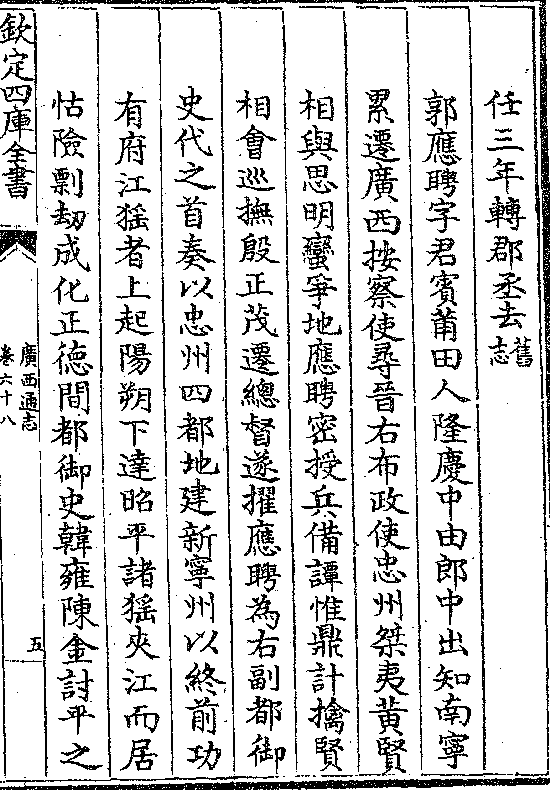 任三年轉郡丞去舊志
郭應聘字君賓莆田人隆慶中由郎中出知南寧
累遷廣西按察使尋晉右布政使忠州桀夷黄賢
相與思明蠻爭地應聘密授兵備譚惟鼎計擒賢
相會巡撫殷正茂遷總督遂擢應聘為右副都御
史代之首奏以忠州四都地建新寧州以終前功
有府江猺者上起陽朔下達昭平諸猺夾江而居
怙險剽劫成化正德間都御史韓雍陳金討平之
欽定四庫全書
廣西通志
卷六十八
五